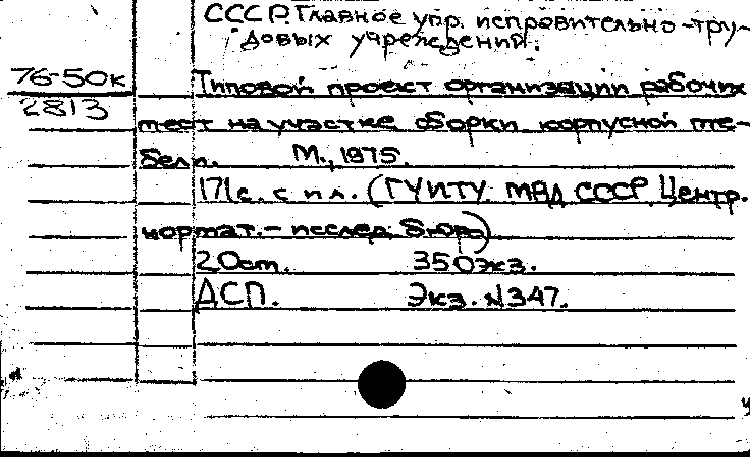 СССР. Главное упр. исправительно-тру-
довых учреждений.
76-50к
2813
Типовой проект организации рабочих
мест на участке сборки корпусной ме-
бели. М., 1975.
171с. с ил. (ГУИТУ МВД СССР. Центр.
нормат.-исслед. бюро)
20см. 350экз.
ДСП. Экз. №347.